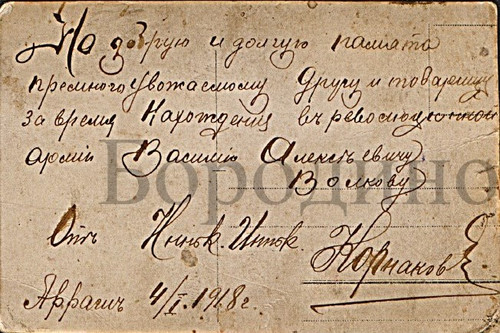 На добрую и долгую память
премного уважаемому другу и товарищу
за время нахождения въ революціонной
арміи Василию Алексѣевичу
Волкову
Отъ Корнаков
4/I 1918 г.
Бородино